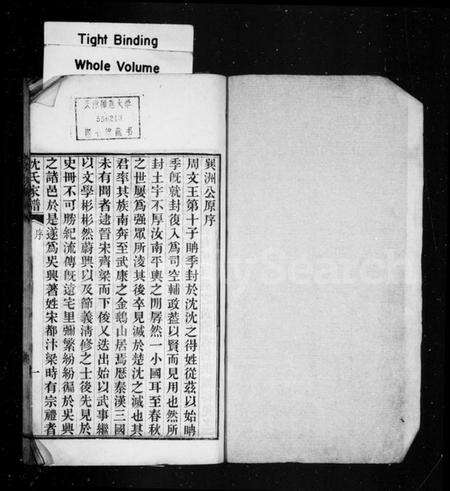 Tight Binding
Whole Volume
巽洲公原序
周文王第十子聃季封於沈沈之得姓從茲以始聃
季旣就封復入爲司空輔政蓋以賢而見用也然所
封土宇不厚汝南平輿之閒孱然一小國耳至春秋
之世屢爲强眾所淩其後卒見滅於楚沈之滅也其
君率其族南奔至武康之金鵝山居焉歷秦漢三國
未有聞者逮晉宋齊梁而下俊乂迭出始以武事繼
以文學彬彬然蔚興以及節義淸修之士後先見於
史冊不可勝紀流傳旣遠宅里彌繁紛紛徧於吳興
之諸邑於是遂爲吳興著姓宋都汴梁時有宗禮者
沈氏家譜
序
一